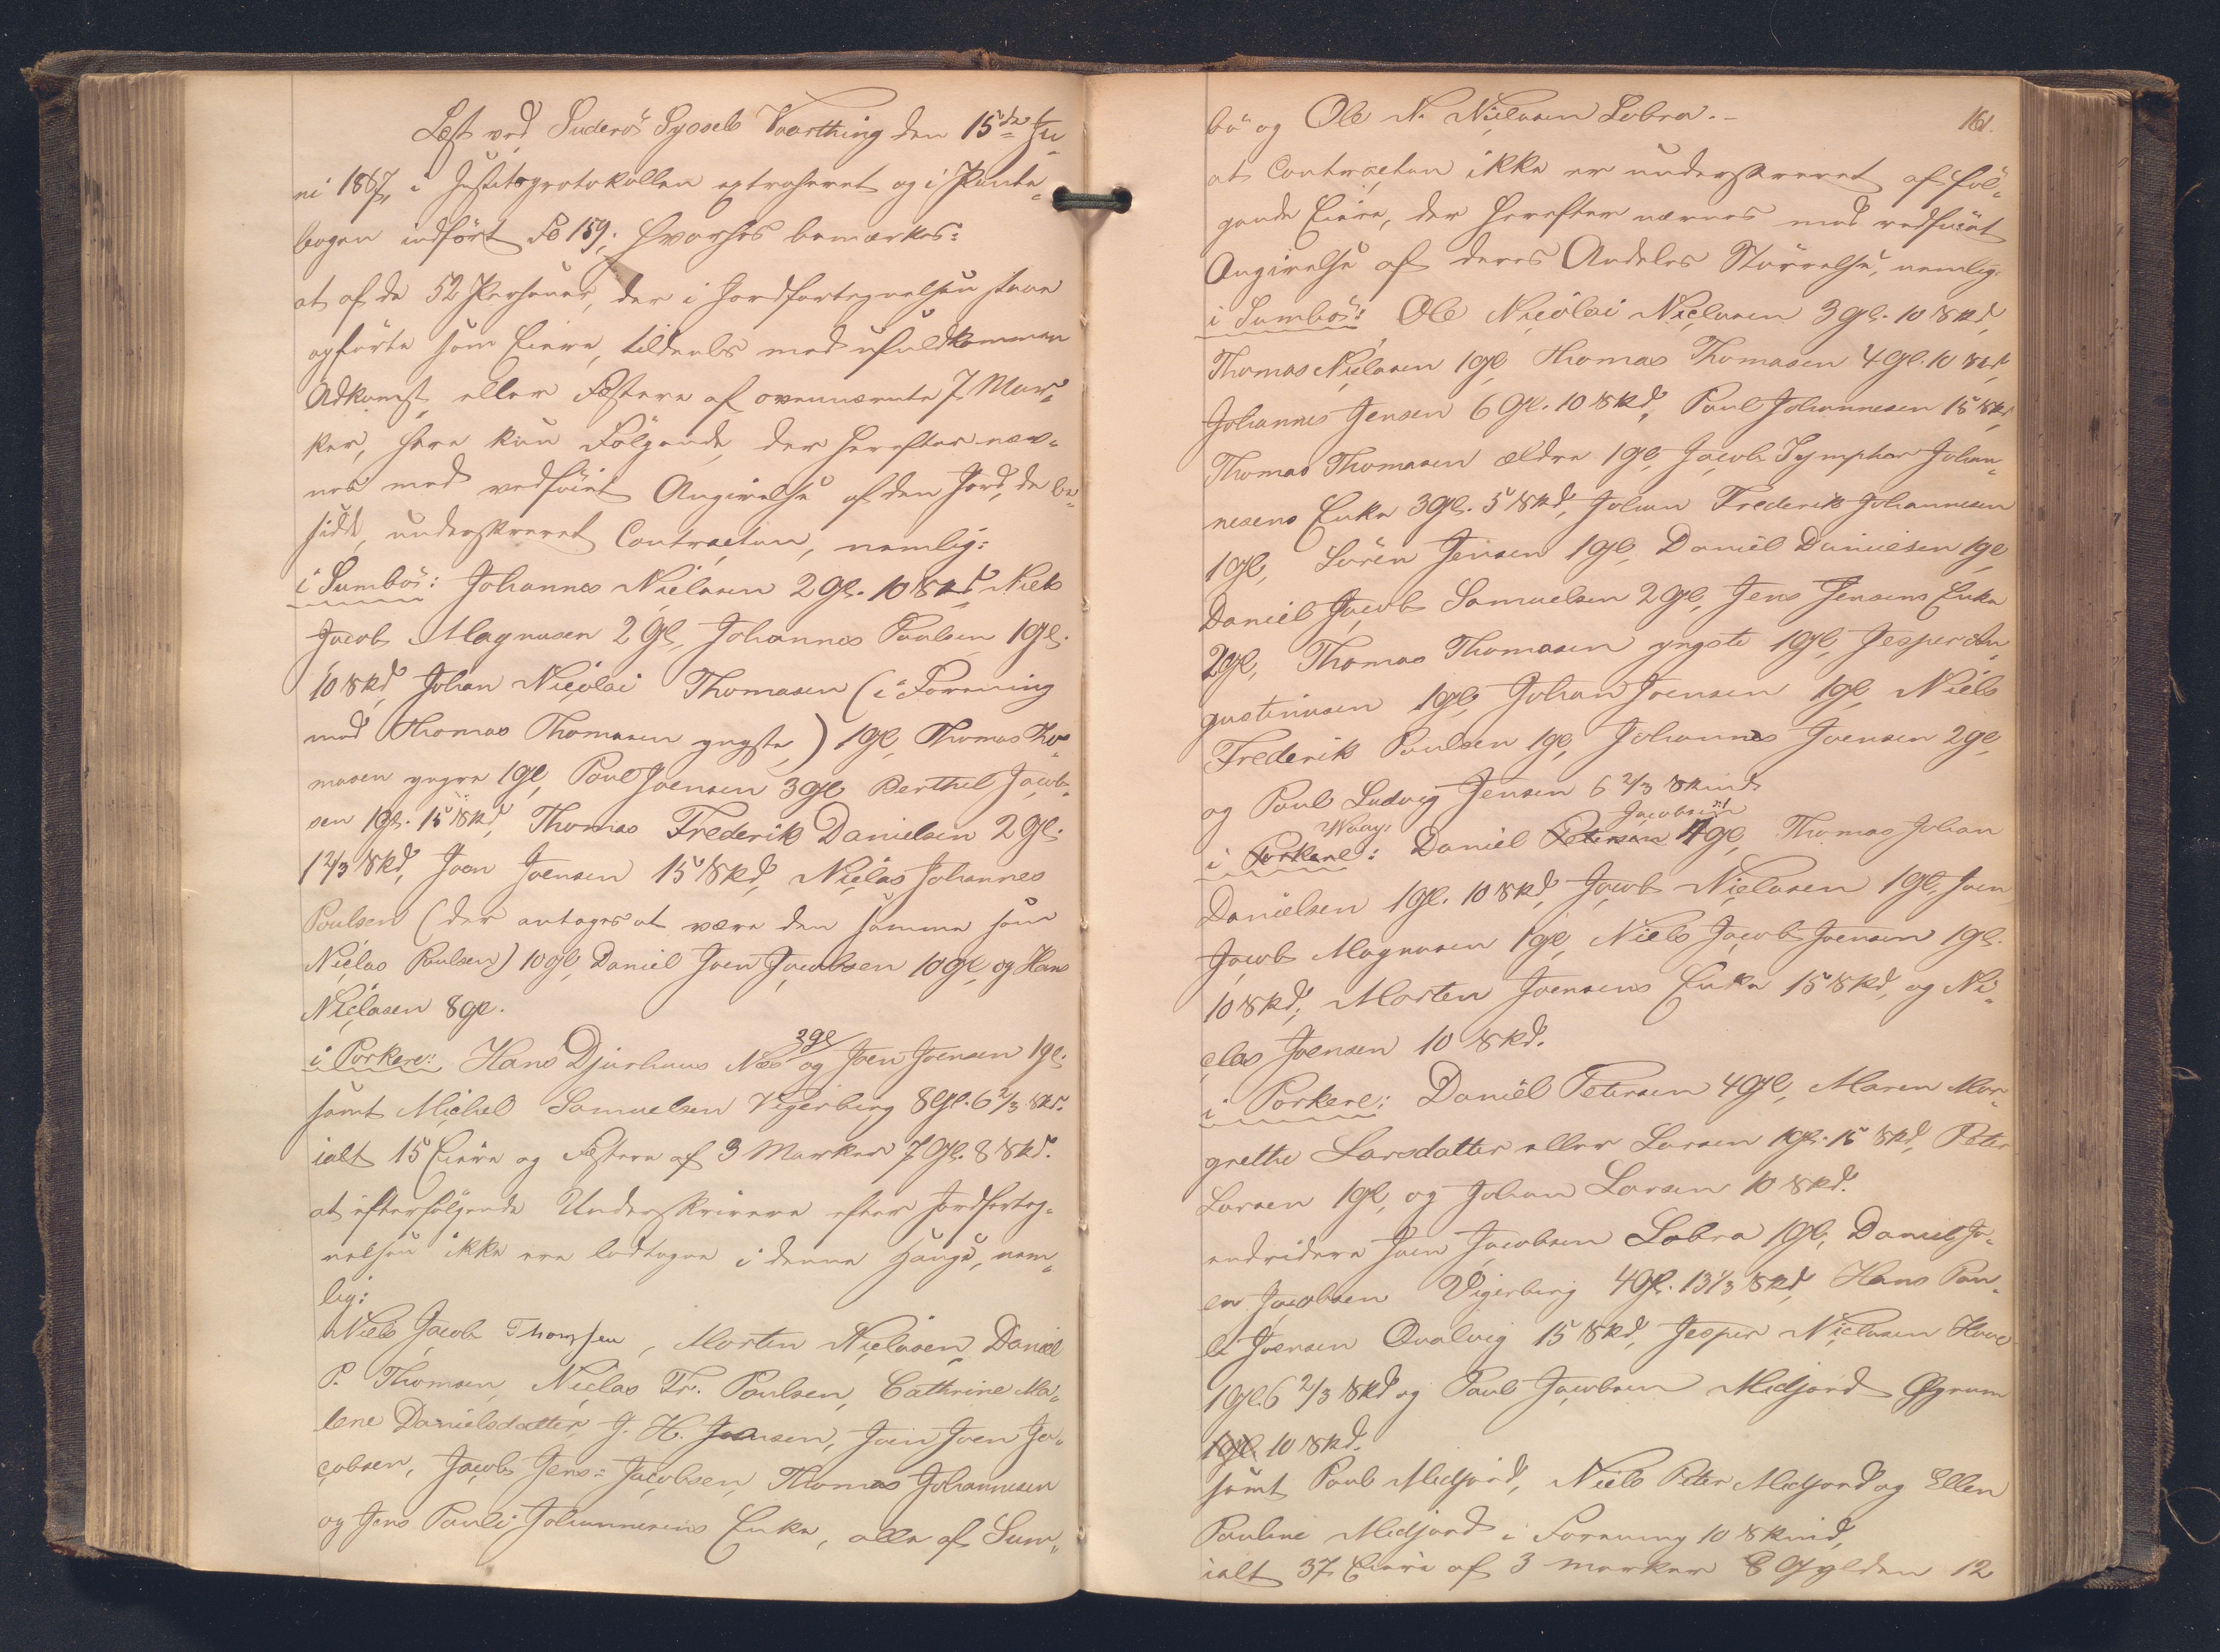 Læst ved Suderö Syssels Vaarthing den 15de Ju-
ni 1867, i Justitsprotokollen extraheret og i Pante-
bogen indfört Fo 159; hvorhos bemærkes:
at af de 52 Personer, der i Jordfortegnelsen staae
opförte som Eiere, tildeels med ufuldkommen
Adkomst, eller Fæstere af ovennævnte 7 Mar-
ker, have kun Fölgende, der herefter næv-
nes med vedföiet Angivelse af den Jord, de be-
sidde, underskrevet Contracten, nemlig:
i Sumbö: Johannes Niclasen 2 Gl. 10 Skd, Niels
Jacob Magnusen 2 Gl, Johannes Poulsen 1 Gl.
10 Skd, Johan Nicolai Thomasen (i Forening
med Thomas Thomasen yngste,) 1 Gl, Thomas Tho-
masen yngre 1 Gl, Poul Joensen 3 Gl, Berthel Jacob-
sen 1 Gl. 15 Skd, Thomas Frederik Danielsen 2 Gl.
1 2/3 Skd, Joen Joensen 15 Skd, Niclas Johannes
Poulsen (der antages at være den samme som
Niclas Poulsen) 10 Gl, Daniel Joen Jacobsen 10 Gl, og Hans
Niclasen 8 Gl.
i Porkere: Hans Djurhuus Næs 3 Gl og Joen Joensen 1 Gl.
samt Michel Samuelsen Vigerberg 8 Gl. 6 2/3 Skd.
ialt 15 Eiere og Fæstere af 3 Marker 7 Gl. 8 Skd.
at efterfölgende Underskrivere efter Jordforteg-
nelsen ikke ere lodtagne i denne Hauge, nem-
lig:
Niels Jacob Thomsen, Morten Niclasen, Daniel
P. Thomsen, Niclas Fr. Poulsen, Cathrine Ma-
lene Danielsdatter, J. H. Joensen, Joen Joen Ja-
cobsen, Jacob Jens Jacobsen, Thomas Johannesen
og Jens Pauli Johannesens Enke, alle af Sum-
161.
bö og Ole N. Nielasen Lobra.-
at Contracten ikke er underskrevet af föl-
gende Eiere, der herefter nævnes med vedföiet
Angivelse af deres Andeles Störrelse, nemlig:
i Sumbö: Ole Nicolai Niclasen 3 Gl. 10 Skd,
Thomas Niclasen 1 Gl, Thomas Thomasen 4 Gl. 10 Skd,
Johannes Jensen 6 Gl. 10 Skd, Poul Johannesen 15 Skd,
Thomas Thomasen ældre 1 Gl, Jacob Symphor Johan-
nesens Enke 3 Gl. 5 Skd, Johan Frederik Johannesen
1 Gl, Sören Jensen 1 Gl, Daniel Danielsen 1 Gl,
Daniel Jacob Samuelsen 2 Gl, Jens Jensens Enke
2 Gl, Thomas Thomasen yngste 1 Gl, Jesper Au-
gustinusen 1 Gl, Johan Joensen 1 Gl, Niels
Frederik Poulsen 1 Gl, Johannes Joensen 2 Gl,
og Poul Ludvig Jensen 6 2/3 Skind
i Porkere Waag: Daniel Petersen Jacobsen 4 Gl, Thomas Johan
Danielsen 1 Gl. 10 Skd, Jacob Nielasen 1 Gl, Joen
Jacob Magnusen 1 Gl, Niels Jacob Joensen 1 Gl.
10 Skd, Morten Joensens Enke 15 Skd, og Ni-
clas Joensen 10 Skd.
i Porkere: Daniel Petersen 4 Gl, Maren Mar-
grethe Larsdatter eller Larsen 1 Gl. 15 Skd, Peter
Larsen 1 Gl, og Johan Larsen 10 Skd.
endvidere Joen Jacobsen Lobra 1 Gl, Daniel Jo-
en Jacobsen Vigerberg 4 Gl. 13 1/3 Skd, Hans Pau-
li Joensen Qvalvig 15 Skd, Jesper Niclasen Hove
1 Gl. 6 2/3 Skd og Poul Jacobsen Midjord Øgrum
1 Gl. 10 Skd.
samt Poul Midjord, Niels Peter Midjord og Ellen
Pauline Midjord i Forening 10 Skind,
ialt 37 Eiere af 3 Marker 8 Gylden 12